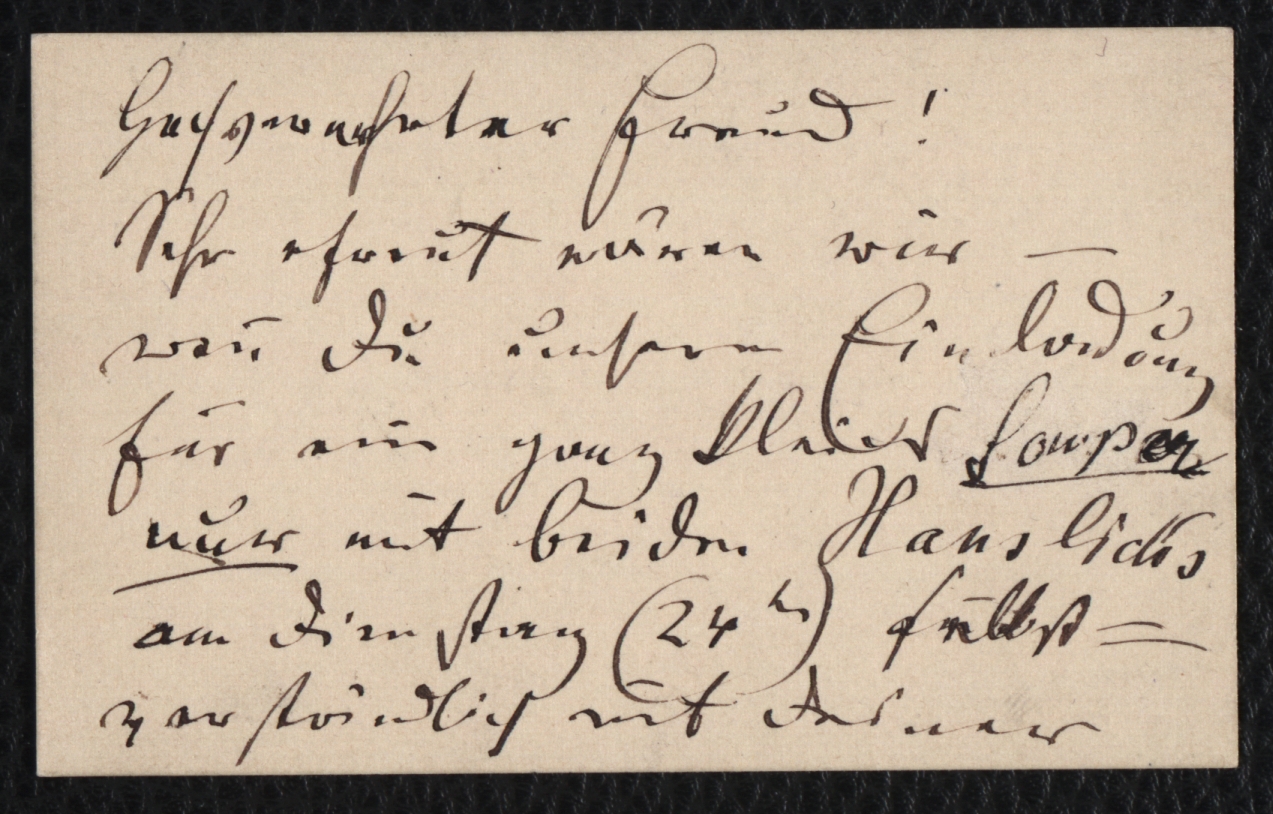 Hochverehrter Freund!
Sehr erfreut wären wir —
wenn Du unsere Einladung
für ein ganz kleines Souper
nur mit beiden Hanslicks
am Dienstag (24ten) selbst=
verständlich mit Deiner